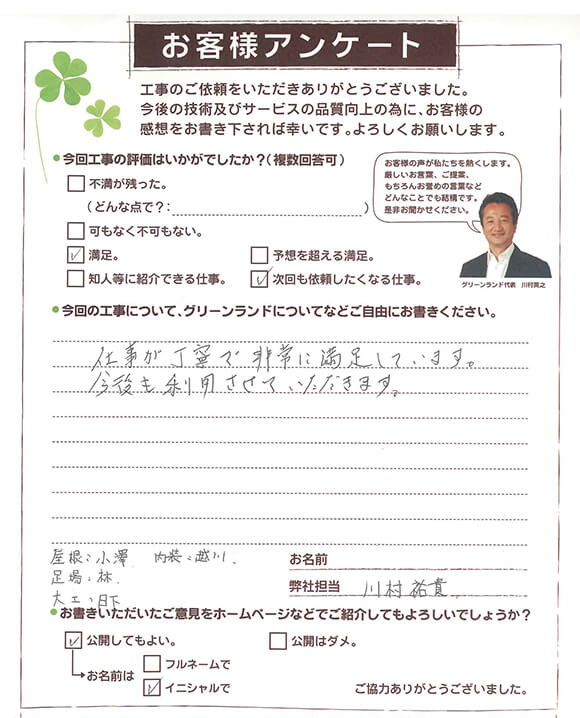 お客様アンケート
工事のご依頼をいただきありがとうございました。
今後の技術及びサービスの品質向上の為に、お客様の
感想をお書き下されば幸いです。よろしくお願いします。
●今回工事の評価はいかがでしたか?(複数回答可)
不満が残った。
(どんな点で?: )
可もなく不可もない。
満足。
予想を超える満足。
知人等に紹介できる仕事。
次回も依頼したくなる仕事。
お客様の声が私たちを熱くします。
厳しいお言葉、ご提案、
もちろんお誉めの言葉など
どんなことでも結構です。
是非お聞かせください。
グリーンランド代表 川村英之
●今回の工事について、グリーンランドについてなどご自由にお書きください。
仕事が丁寧で非常に満足しています。
今後も利用させていただきます。
屋根:小澤 内装:越川
足場:林
大工:日下
お名前
弊社担当 川村祐貴
●お書きいただいたご意見をホームページなどでご紹介してもよろしいでしょうか?
公開してもよい。
公開はダメ。
お名前は
フルネームで
イニシャルで
ご協力ありがとうございました。